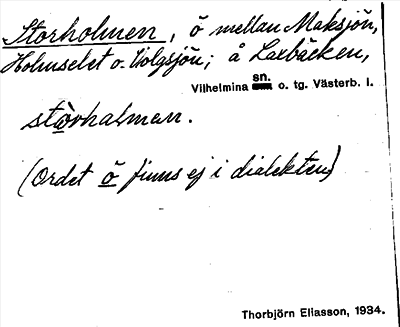 Storholmen, ö mellan Maksjön,
Holmselet o. Volgsjön; å Laxbäcken,
Vilhelmina sn. o. tg. Västerb. l.
stòrhalman.
(Ordet ö finns ej i dialekten)
Thorbjörn Eliasson, 1934.